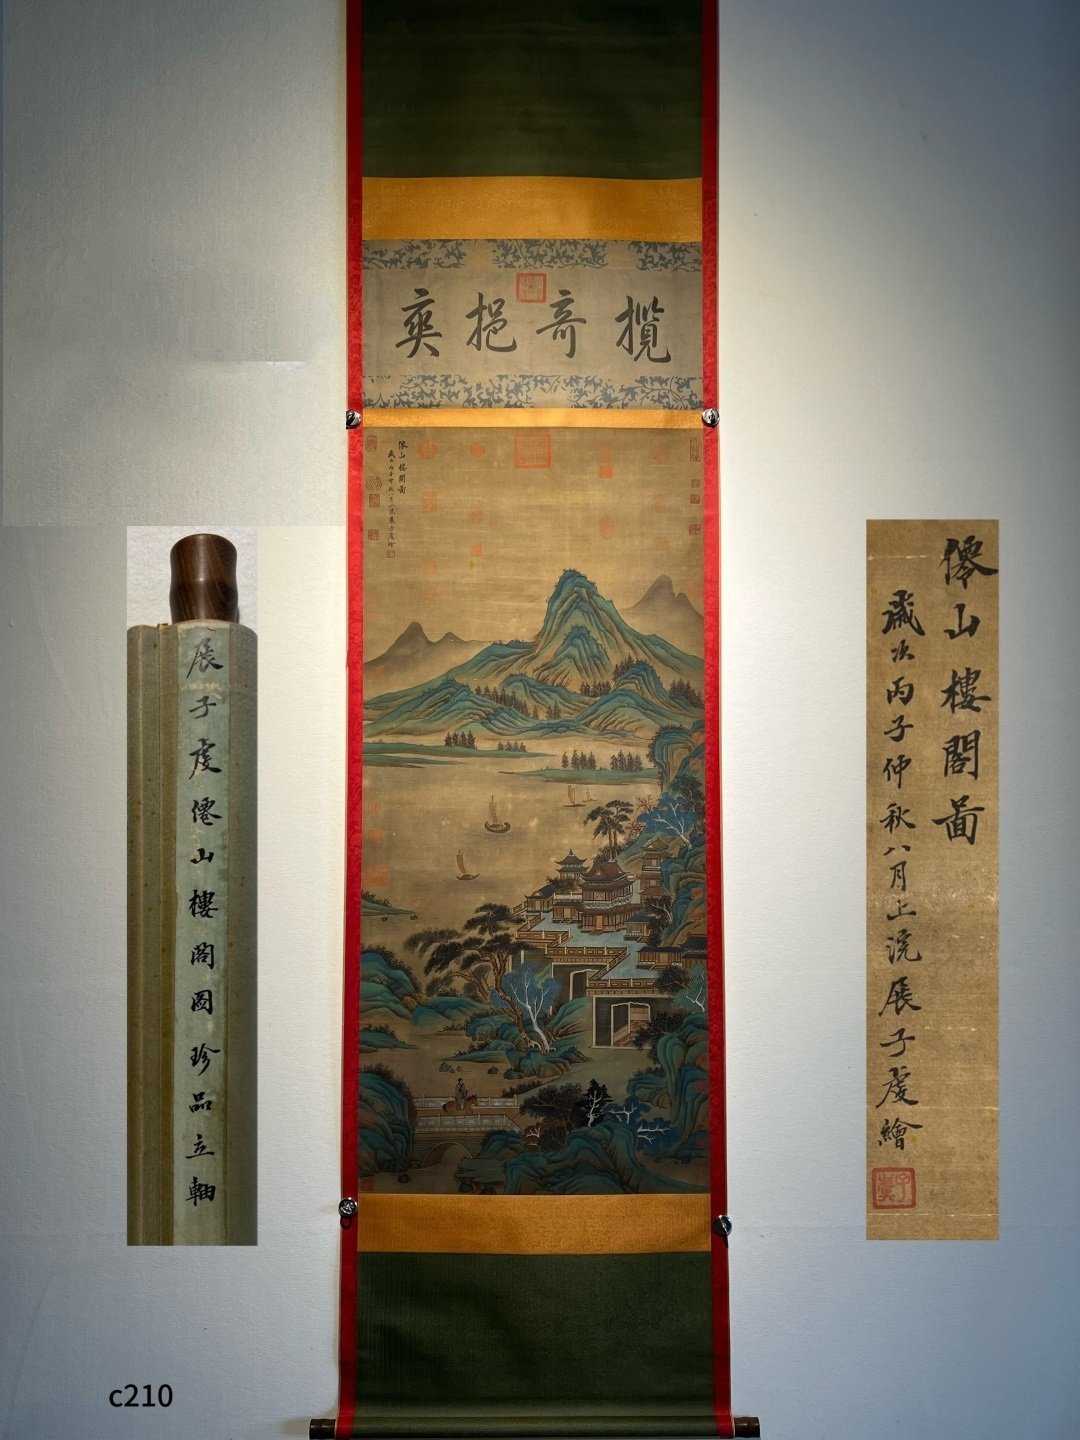 攬奇挹爽
僊山樓閣啚
歲次丙子仲秋八月上浣展子虔繪
展子虔僊山樓閣圖珍品立軸
僊山樓閣啚
歲次丙子仲秋八月上浣展子虔繪
c210